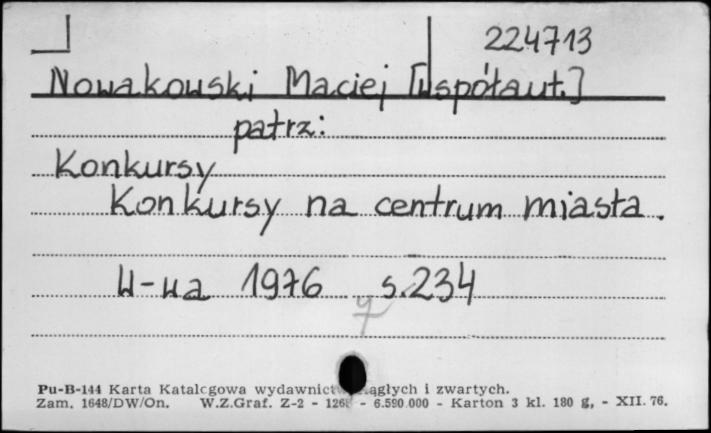 224713
Nowakowski Maciej [współaut.]
patrz:
Konkursy
Konkursy na centrum miasta.
W-wa 1976 s.234
Pu-B-144 Karta Katalogowa wydawnictw ciągłych i zwartych.
Zam. 1648/DW/On. W.Z.Graf. Z-2 - 1268 - 6.590.000 - Karton 3 kl. 180 g, - XII. 76.